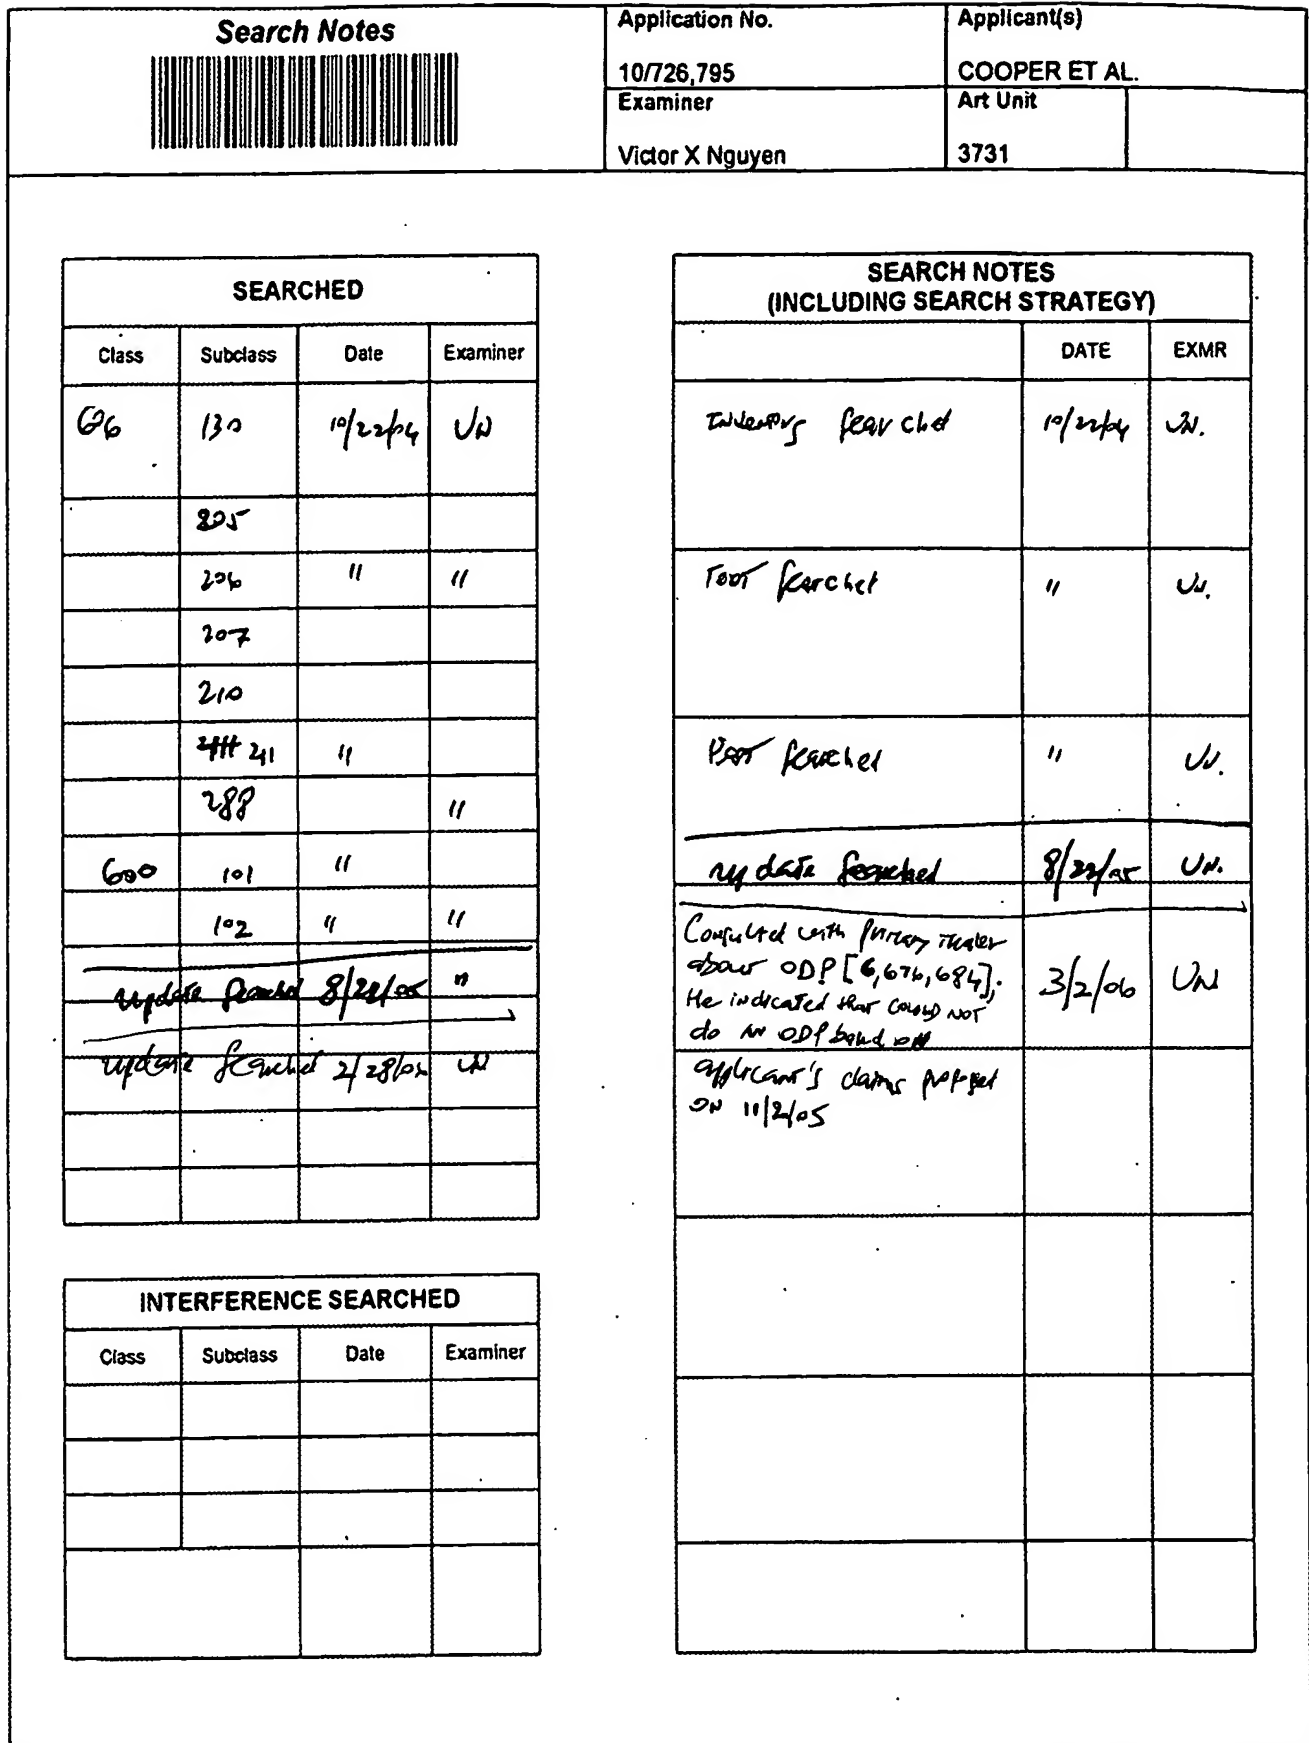 Search Notes
Application No.
10/726,795
Applicant(s)
COOPER ET AL.
Examiner
Victor X Nguyen
Art Unit
3731
SEARCHED
Class Subclass Date Examiner
606 130 10/22/04 VN
205
206 " "
207
210
211 "
288 "
600 101 "
102 " "
update searched 8/22/05 "
update searched 2/28/06 VN
INTERFERENCE SEARCHED
Class Subclass Date Examiner
SEARCH NOTES
(INCLUDING SEARCH STRATEGY)
DATE EXMR
Inventors searched 10/22/04 VN.
searched " VN.
searched " VN.
update searched 8/22/05 VN.
Consulted with Primary
about ODP [6,676,684].
He indicated that could NOT
do AN ODP based on
3/2/06 VN
applicant's claims proposed
ON 11/2/05